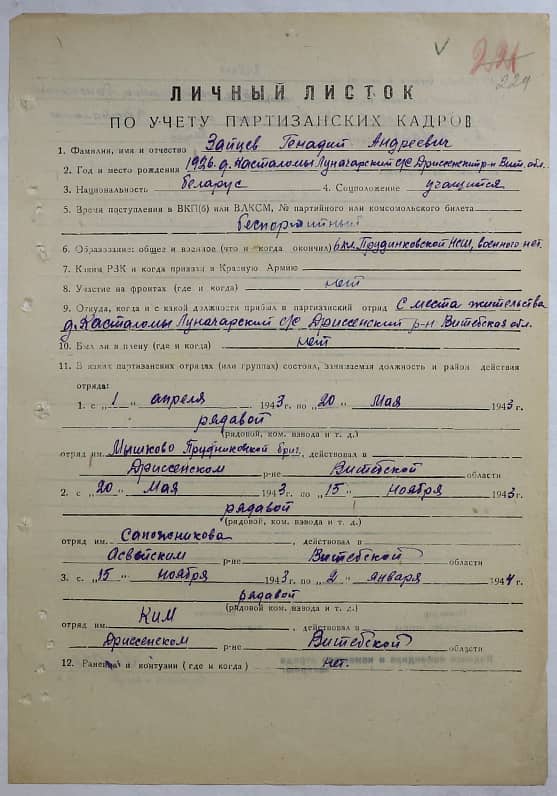 224
229
ЛИЧНЫЙ ЛИСТОК
ПО УЧЕТУ ПАРТИЗАНСКИХ КАДРОВ
1. Фамилия, имя и отчество Зайцев Генадий Андреевич
2. Год и место рождения 1926 д. Касталомы Луначарский с/с Дриссенский р-н Вит. обл.
3. Национальность беларус 4. Соцположение учащийся
5. Время поступления в ВКП(б) или ВЛКСМ, № партийного или комсомольского билета
беспартийный
6. Образование: общее и военное (что и когда окончил) 6 кл. Прудинковской НСШ, военного нет.
7. Каким РЗК и когда призван в Красную Армию
8. Участие на фронтах (где и когда) нет
9. Откуда, когда и с какой должности прибыл в партизанский отряд С места жительства
д. Касталомы Луначарский с/с Дриссенский р-н Витебская обл.
10. Был ли в плену (где и когда) нет
11. В каких партизанских отрядах (или группах) состоял, занимаемая должность и район действия
отряда:
1. с „1" апреля 1943 г. по „20" Мая 1943 г.
рядавой
(рядовой, ком. взвода и т. д.)
отряд им. Мышково Прудниковской бриг., действовал в
Дриссенском р-не Витебской области
2. с „20" Мая 1943 г. по „15" ноября 1943 г.
рядавой
(рядовой, ком. взвода и т. д.)
отряд им. Сапожникова, действовал в
Асвейским р-не Витебской области
3. с „15" ноября 1943 г. по „2" января 1944 г.
рядавой
(рядовой, ком. взвода и т. д.)
отряд им. Ким, действовал в
Дриссенском р-не Витебской области
12. Ранения и контузии (где и когда) нет.